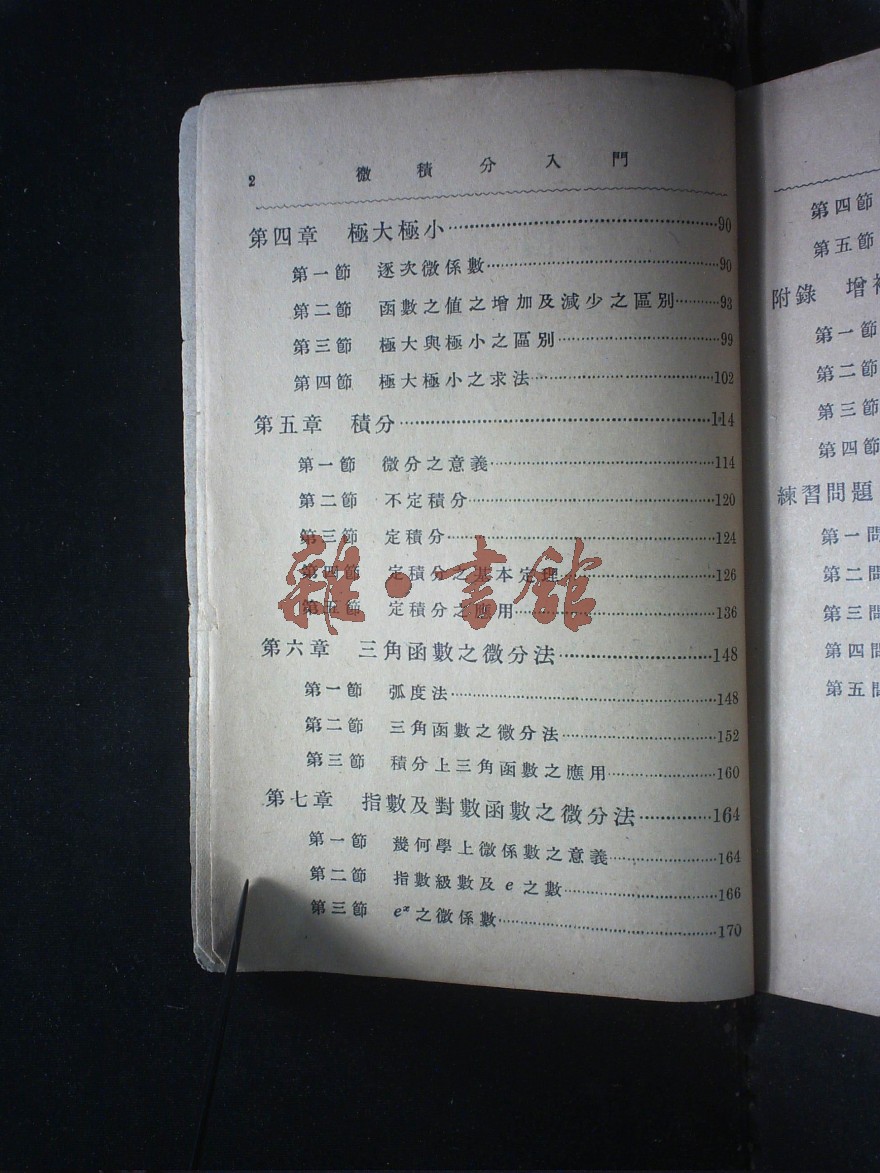 2 微積分入門
第四章 極大極小 90
第一節 逐次微係數 90
第二節 函數之值之增加及減少之區別 93
第三節 極大與極小之區別 99
第四節 極大極小之求法 102
第五章 積分 114
第一節 微分之意義 114
第二節 不定積分 120
第三節 定積分 124
第四節 定積分之基本定理 126
第五節 定積分之應用 136
第六章 三角函數之微分法 148
第一節 弧度法 148
第二節 三角函數之微分法 152
第三節 積分上三角函數之應用 160
第七章 指數及對數函數之微分法 164
第一節 幾何學上微係數之意義 164
第二節 指數級數及 e 之數 166
第三節 eˣ之微係數 170
雜·書館
第四節
第五節
附錄 增
第一節
第二節
第三節
第四節
練習問題
第一問
第二問
第三問
第四問
第五問